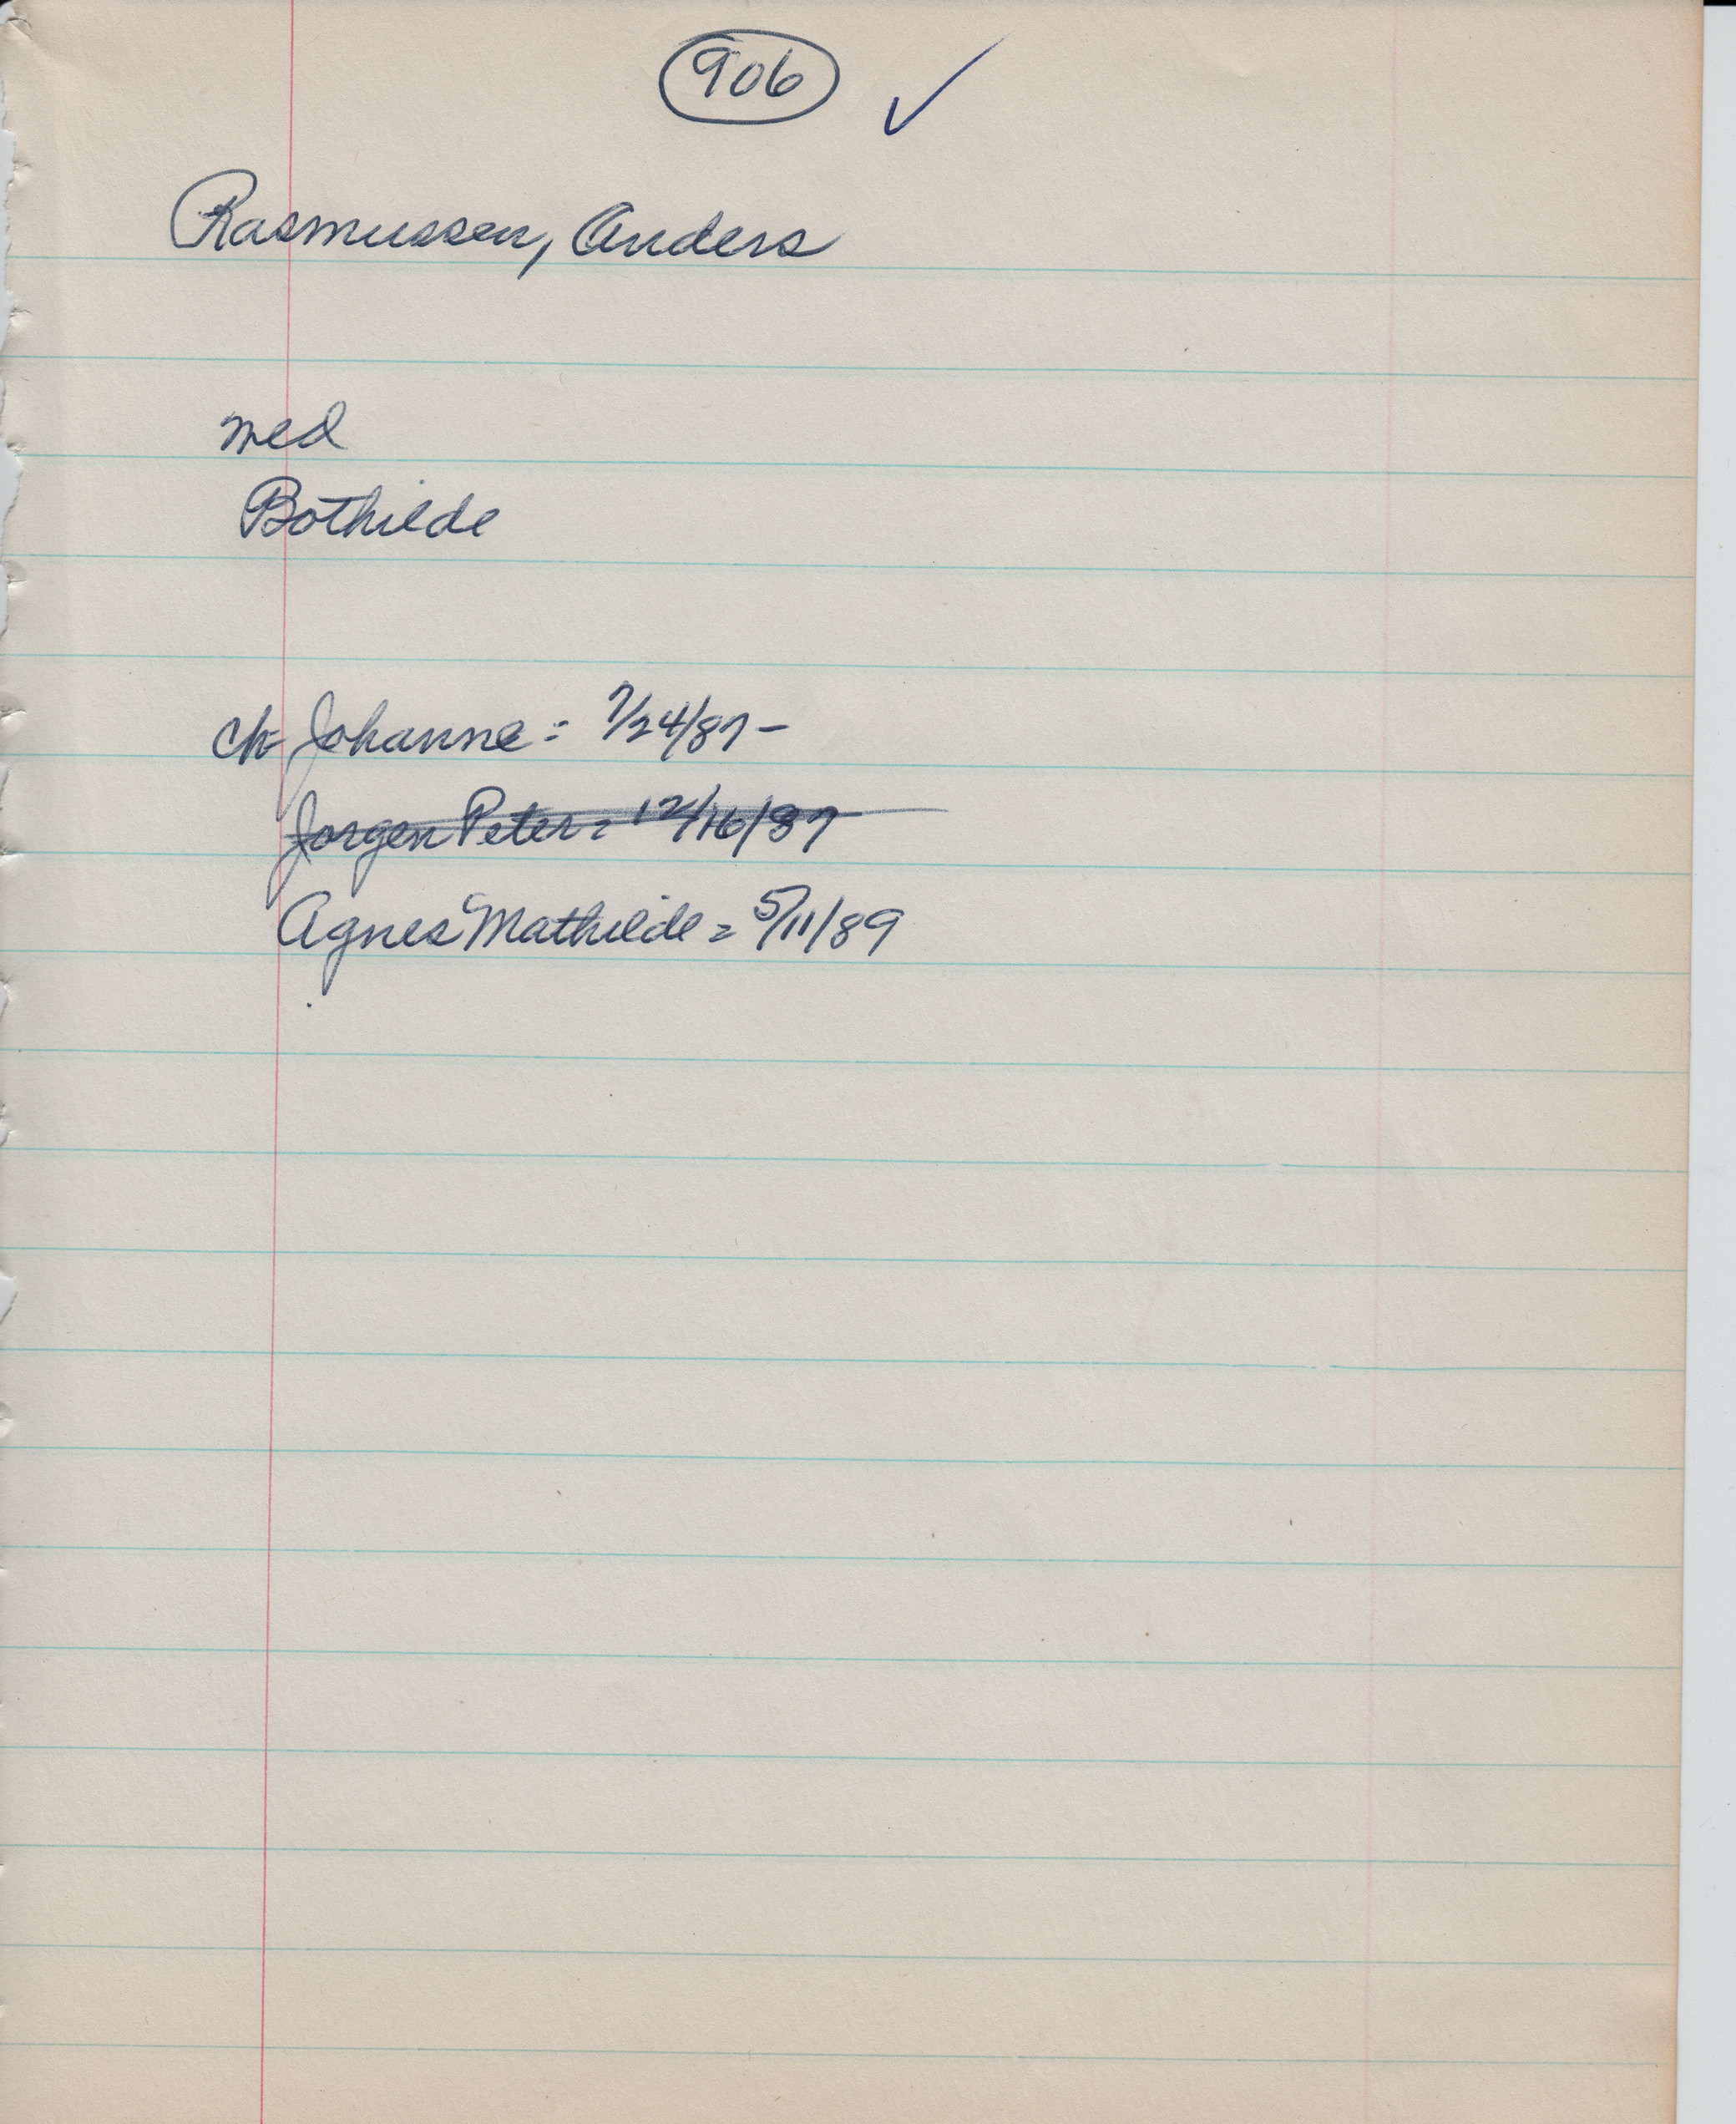 906 ✓
Rasmussen, Anders
med
Bothilde
ch Johanne = 7/24/87 -
Jorgen Peter = 12/16/87
Agnes Mathilde = 5/11/89